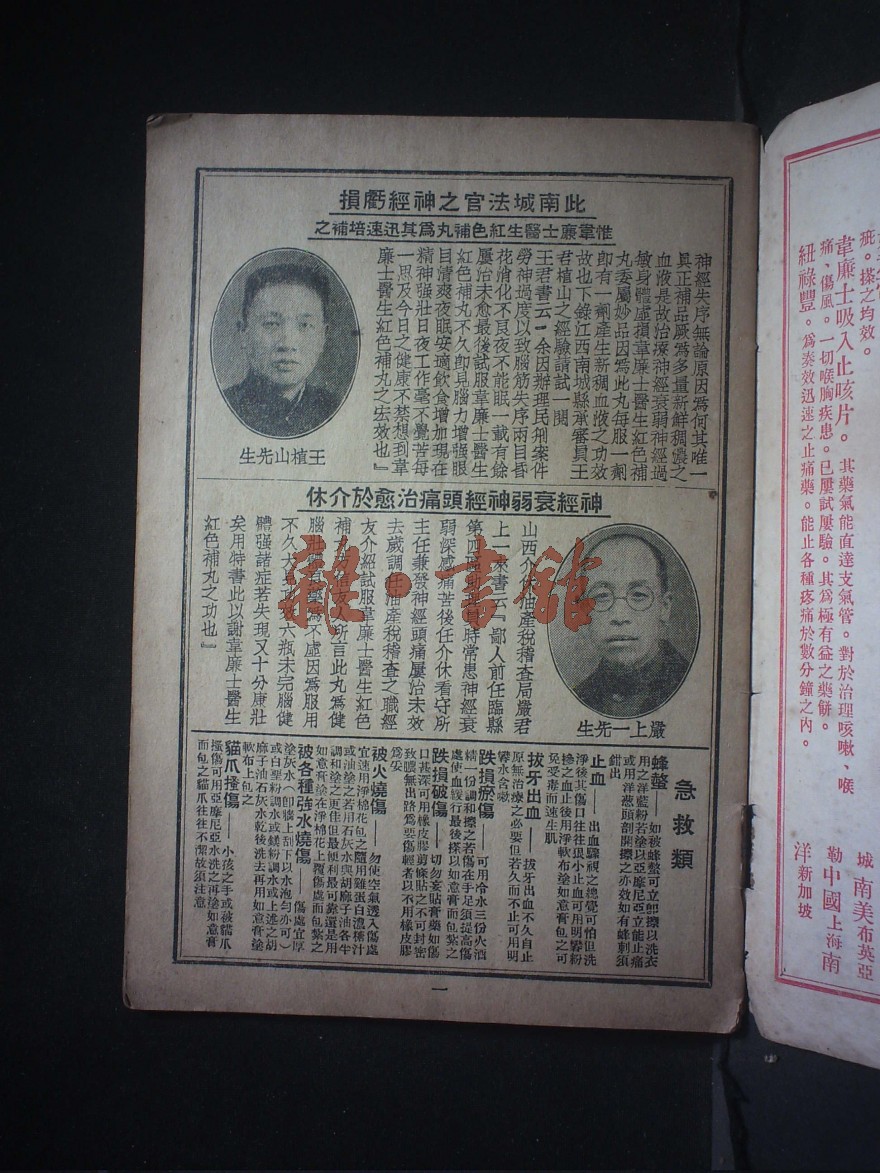 此南城法官之神經虧損
惟韋廉士醫生紅色補丸爲其迅速培補之
神經失序無論原因爲何其唯一
真正補品厥爲多量新鮮稠濃之
血液是故治療神經衰弱神經過
敏身體虛損韋廉士醫生紅色補
丸委屬妙品因爲此丸每服一劑
即有一劑產生新稠血液之功效
故也下錄江西南城縣承審員王
君植山之經驗請試一閱
王君書云『余因辦理民刑案件
勞神過度以致腦筋失序兩目昏
花消化不良夜不能眠一載有餘
屢治未愈最後試服韋廉士醫生
紅色補丸不久卽見腦力增强眼
目清爽夜眠安適飲食增加現在
精神强壯日夜工作毫不覺苦每
一思及今日之健康不禁想到韋
廉士醫生紅色補丸之宏效也』
王植山先生
神經衰弱神經頭痛治愈於介休
嚴上一先生
山西介休油產稅稽查局嚴君
上一來書云『鄙人前任臨縣
第四區時常患神經衰
弱深感痛苦後任介休看守所
主任兼發神經頭痛屢治未效
去歲調任油產稅稽查之職經
友介紹試服韋廉士醫生紅色
補丸友人所言此丸爲健
腦壯藥爲不虛因爲服用
不久大六瓶未完腦健
體强諸症若失現又十分康壯
矣用特書此以謝韋廉士醫生
紅色補丸之功也』
急救類
蜂螫——如被蜂螫可立卽擦以洗衣
用之洋藍粉若塗以亞摩尼亞立能止痛
或用洋葱頭剖開擦之亦效如有蜂刺須
鉗出
止血——出血驟視之總覺可怕但洗
淨後其傷口往往很小止血可用明礬粉
摻之血止後用淨軟布塗如意膏包之可
免受毒而速生肌
拔牙出血——拔牙出血不久自止
原無治療之必要但若久而不止可用明
礬水含嗽
跌損瘀傷——可用冷水三份火酒
精一份調和擦之若傷在手足須提高傷
處使血緩行最後搽以如意膏而包紮之
跌損破傷——切勿妄貼膏藥如傷
口甚深可用橡皮膠剪條貼之不可封密
致膿無出路爲要傷輕者以不用橡皮膠
爲安
被火燒傷——勿使空氣透入傷處
宜速用淨棉花包之隨用雞蛋白濃糖汁
或油塗之若用石灰水與胡麻子油各半
調和塗之更佳但最便利最可靠還是用
如意膏塗在淨棉花上覆傷處而包紮之
被各種強水燒傷——傷處宜厚
塗灰水(卽牆上刮下以水泡勻亦可)
或白堊粉調水或鎂粉調水或上述之胡
麻子油石灰水乾後洗去再用如意膏塗
軟布上包之
貓爪搔傷——小孩之手或被貓爪
搔傷可用亞摩尼亞水洗之再塗如意膏
而包之貓爪往往不潔故須注意
一
雜·書館
疵。搽之均效。
韋廉士吸入止咳片。其藥氣能直達支氣管。對於治理咳嗽、喉
痛、傷風。一切喉胸疾患。已屢試屢驗。其爲極有益之藥餅。
紐祿豐。爲奏效迅速之止痛藥。能止各種疼痛於數分鐘之內。
城南美布英亞
勒中國上海南
洋新加坡